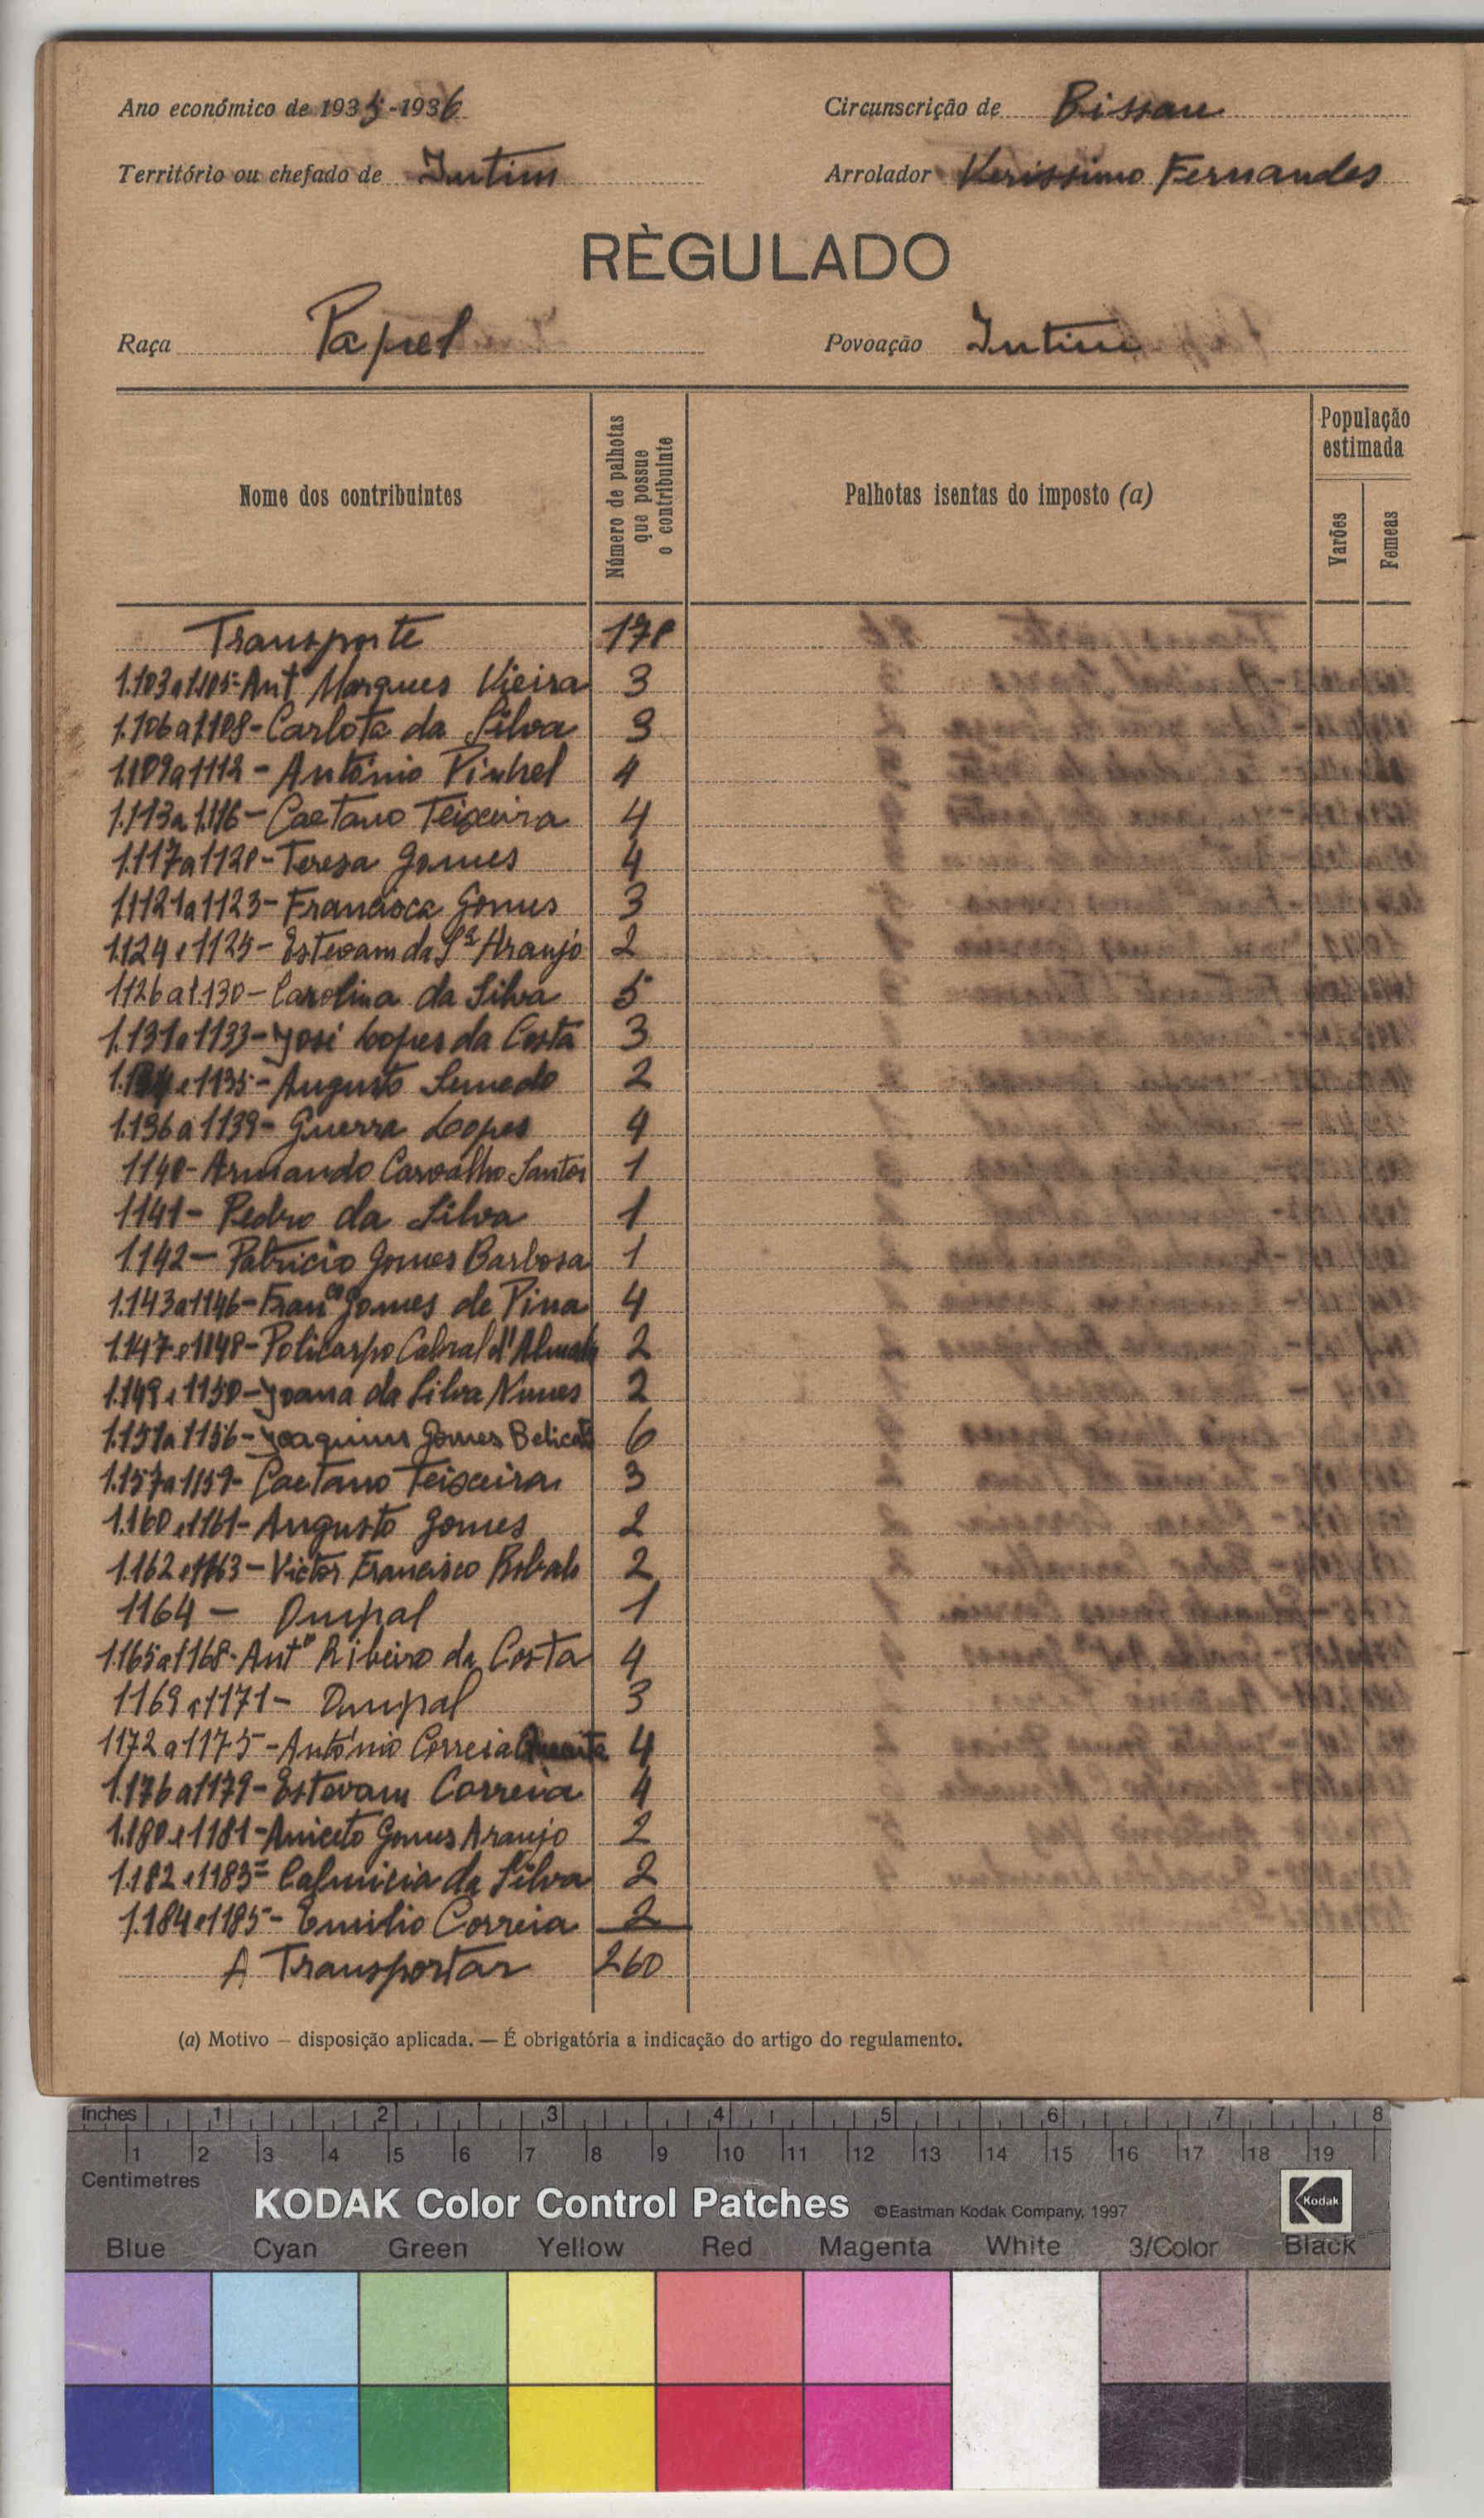 Ano económico de 1935-1936
Circunscrição de Bissau
Território ou chefado de Intim
Arrolador Verissimo Fernandes
RÈGULADO
Raça Papel
Povoação Intim
Nome dos contribuintes
Número de palhotas que possue o contribuinte
Palhotas isentas do imposto (a)
População estimada
Varões
Femeas
Transporte 178
1.103a1.105-Antº Marques Vieira 3
1.106a1108-Carlota da Silva 3
1.109a1112-António Pinhel 4
1.113a1.116-Caetano Teixeira 4
1.117a1120-Teresa Gomes 4
1.1121a1123-Francisca Gomes 3
1.124e1125-Estevam da Sª Araujo 2
1126a1.130-Carolina da Silva 5
1.131a1133-José Lopes da Costa 3
1.134e1135-Augusto Semedo 2
1.136a1139-Guerra Lopes 4
1140-Armando Carvalho Santos 1
1141-Pedro da Silva 1
1.142-Patricio Gomes Barbosa 1
1.143a1146-Franco Gomes de Pina 4
1.147e1148-Policarpo Cabral d'Almada 2
1.149e1150-Joana da Silva Nunes 2
1.151a1156-Joaquim Gomes 6
1.157a1159-Caetano Teixeira 3
1.160e1161-Augusto Gomes 2
1.162e1163-Victor Francisco Robalo 2
1164- 1
1.165a1168-Antº Ribeiro da Costa 4
1169a1171- 3
1172a1175-António Correia 4
1.176a1179-Estevam Correia 4
1.180e1181-Aniceto Gomes Araujo 2
1.182e1183= da Silva 2
1.184e1185-Emilio Correia 2
A Transportar 260
(a) Motivo — disposição aplicada. — É obrigatória a indicação do artigo do regulamento.
Inches 1 2 3 4 5 6 7 8
1 2 3 4 5 6 7 8 9 10 11 12 13 14 15 16 17 18 19
Centimetres
KODAK Color Control Patches ©Eastman Kodak Company, 1997 Kodak
Blue Cyan Green Yellow Red Magenta White 3/Color Black